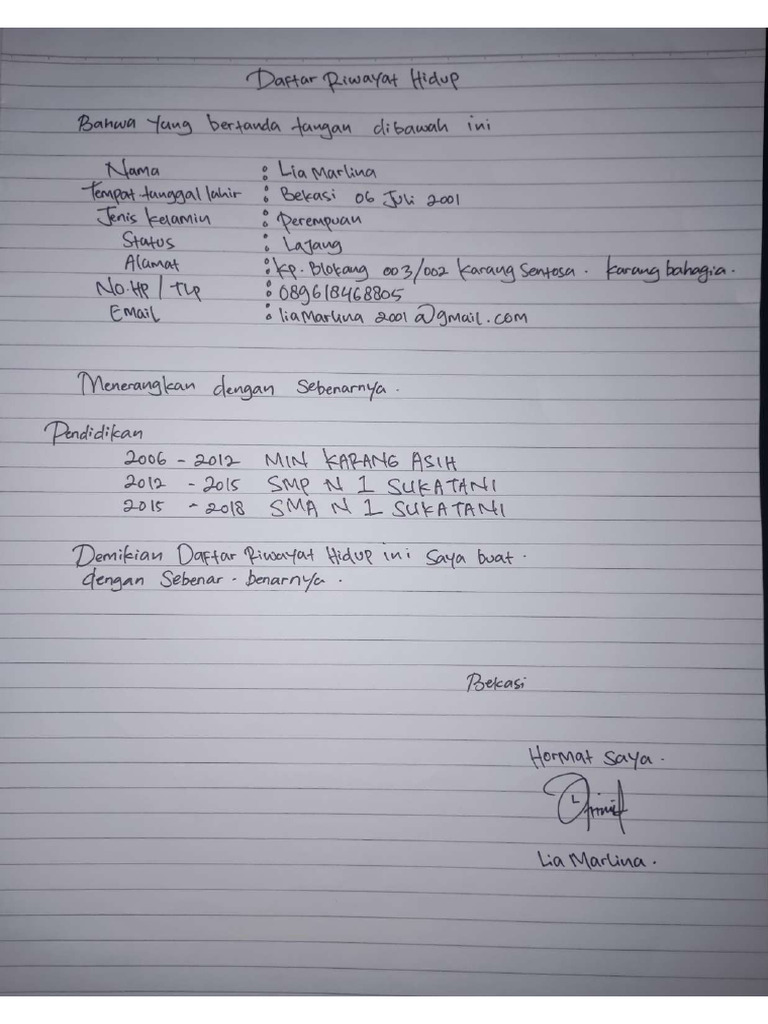 Daftar Riwayat Hidup
Bahwa yang bertanda tangan dibawah ini
Nama : Lia Marlina
Tempat tanggal lahir : Bekasi 06 Juli 2001
Jenis kelamin : Perempuan
Status : Lajang
Alamat : Kp. Blokang 003/002 Karang Sentosa. Karang bahagia.
No. HP / Tlp : 089618468805
Email : liaMarlina 2001 @gmail.com
Menerangkan dengan Sebenarnya.
Pendidikan
2006 - 2012 MIN KARANG ASIH
2012 - 2015 SMP N 1 SUKATANI
2015 - 2018 SMA N 1 SUKATANI
Demikian Daftar Riwayat Hidup ini Saya buat.
dengan Sebenar - benarnya.
Bekasi
Hormat Saya.
Lia Marlina.